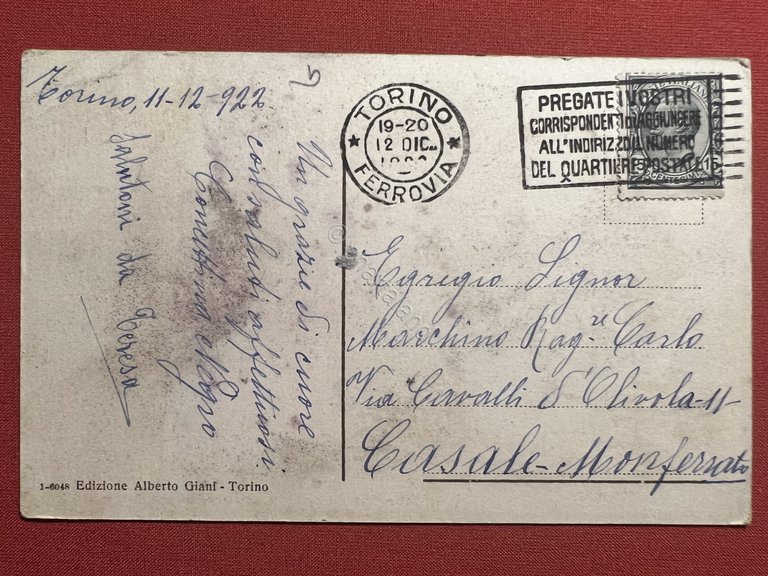 Torino, 11-12-922
Un grazie di cuore
con saluti affettuosi.
Comettina Negro
Salutoni da Teresa
1-6048 Edizione Alberto Giani - Torino
TORINO
19-20
12 DIC.
FERROVIA
PREGATE I VOSTRI
CORRISPONDENTI DI AGGIUNGERE
ALL'INDIRIZZO IL NUMERO
DEL QUARTIERE POSTALE
Egregio Signor
Marchino Rag.re Carlo
Via Cavalli d'Olivola-11-
Casale-Monferrato